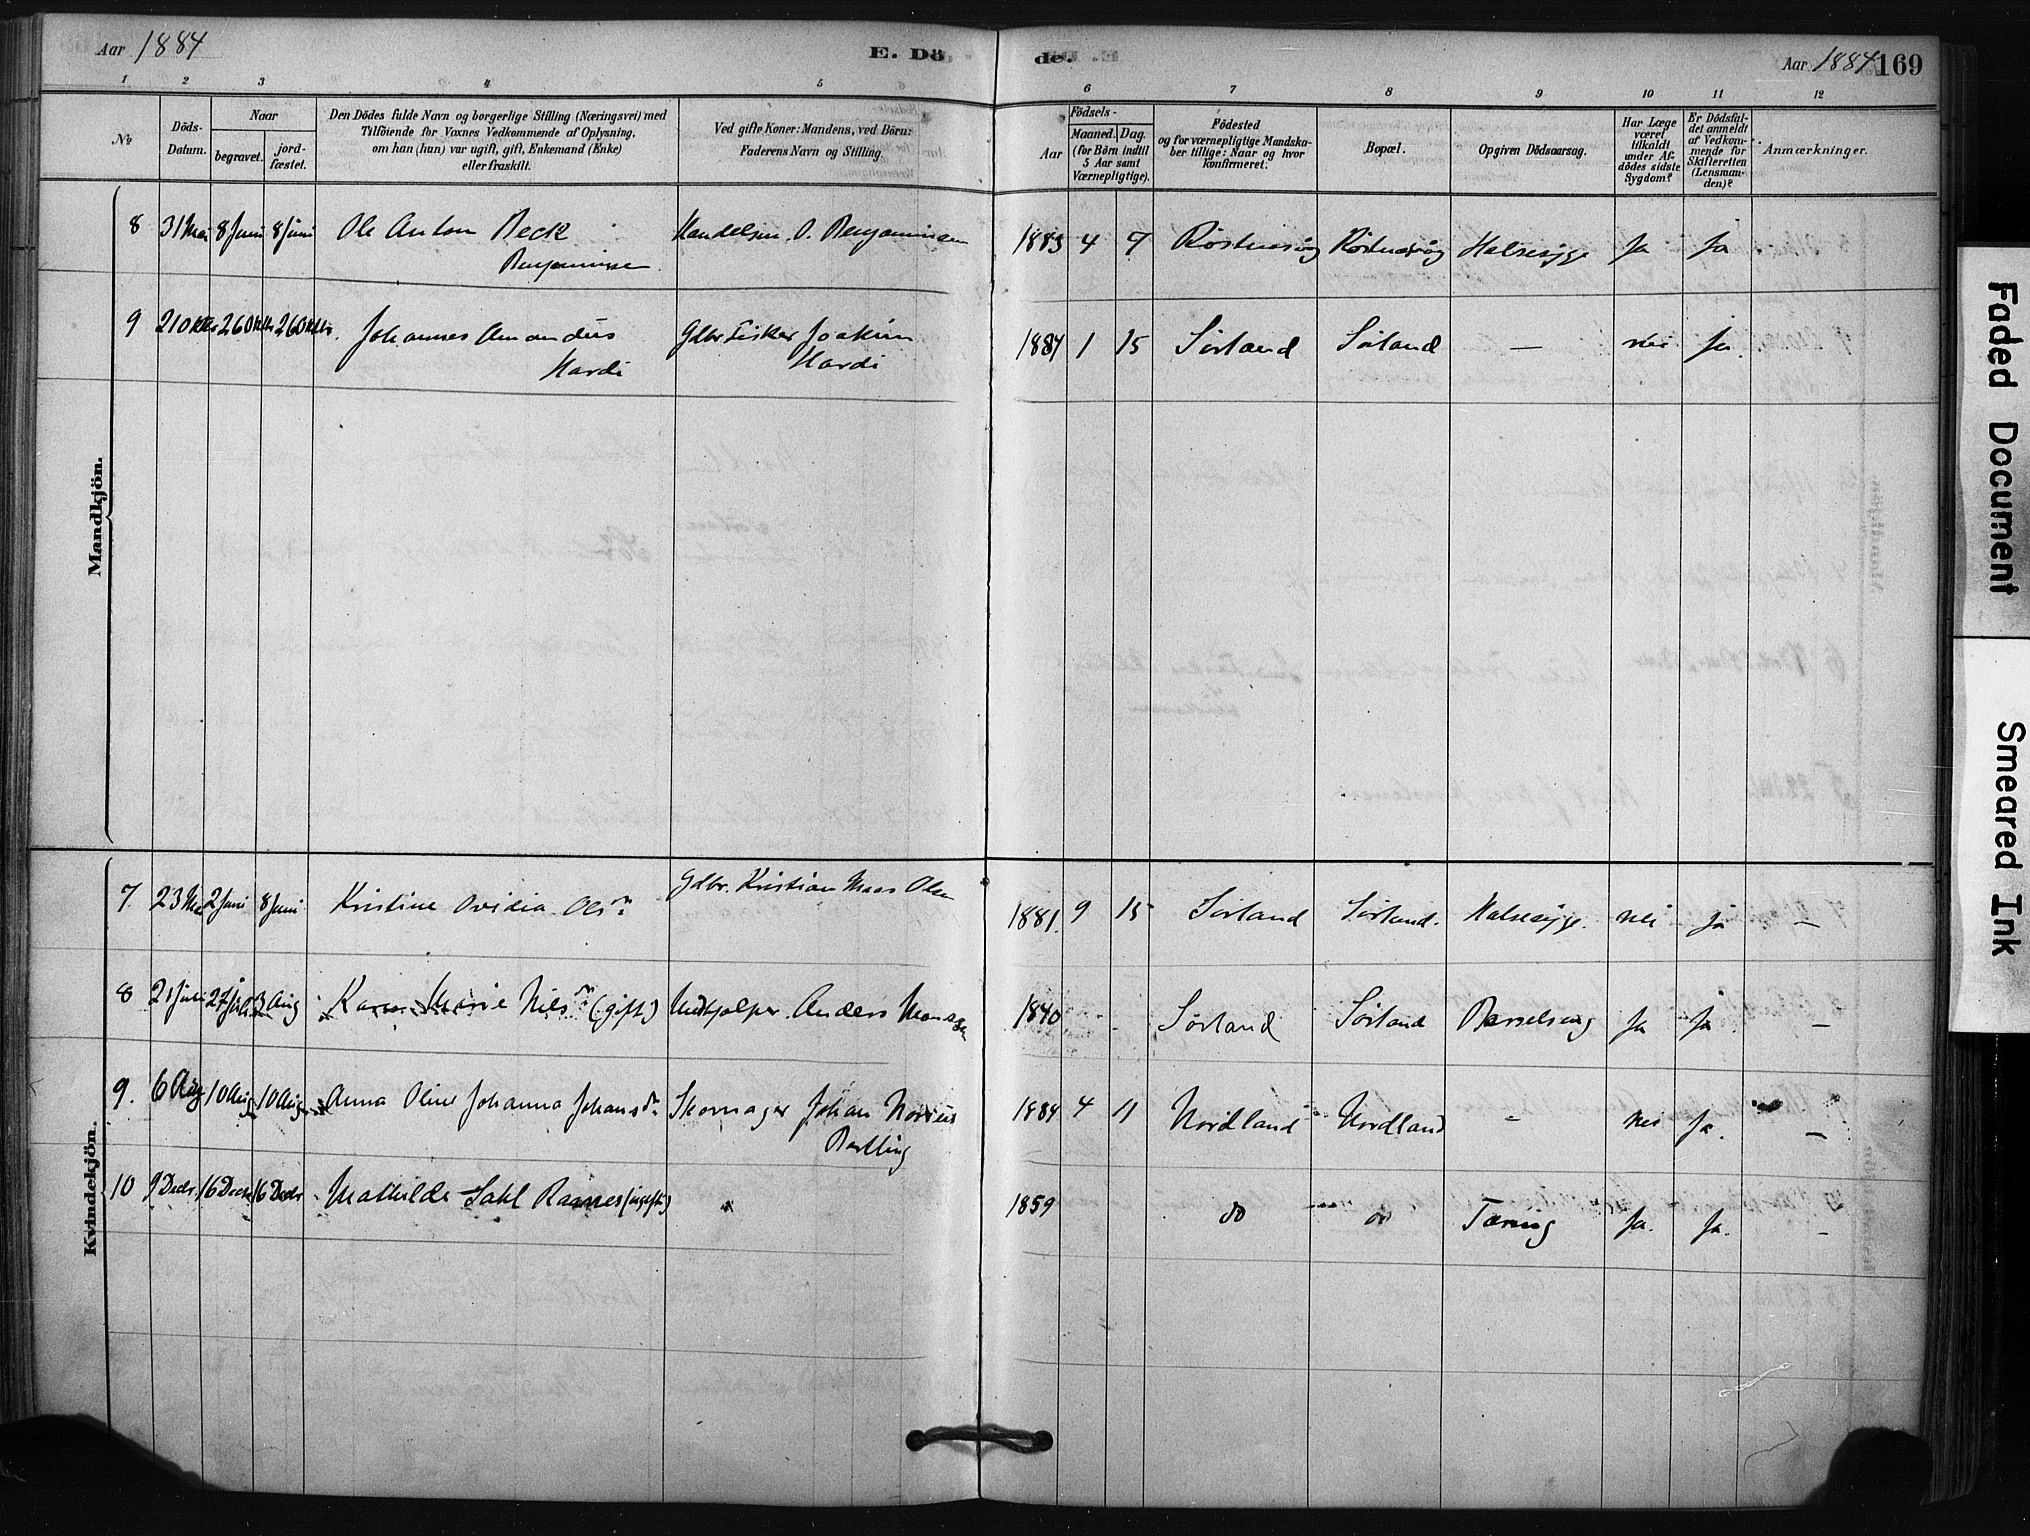 Aar 1884
E. Dö
de.
Aar 1884
169
1 2 3 4 5 6 7 8 9 10 11 12
No
Döds-
Datum.
Naar
begravet.
jord-
fæstet.
Den Dödes fulde Navn og borgerlige Stilling (Næringsvei) med
Tilföiende for Voxnes Vedkommende af Oplysning,
om han (hun) var ugift, gift, Enkemand (Enke)
eller fraskilt.
Ved gifte Koner: Mandens, ved Börn:
Faderens Navn og Stilling.
Födsels-
Aar
Maaned.
Dag.
(for Börn indtil
5 Aar samt
Værnepligtige).
Födested
og for værnepligtige Mandska-
ber tillige: Naar og hvor
konfirmeret.
Bopæl.
Opgiven Dödsaarsag.
Har Læge
været
tilkaldt
under Af-
dödes sidste
Sygdom?
Er Dödsfal-
det anmeldt
af Vedkom-
mende for
Skifteretten
(Lensman-
den)?
Anmærkninger.
Mandkjön.
8 31 Mai 8 Juni 8 Juni Ole Anton Beck Handelsm. O. Benjaminsen 1883 4 7 Røstnesvåg Røstnesvåg Halsesyge Ja Ja
Benjaminsen
9 21 Oktbr 26 Oktbr 26 Oktbr. Johannes Amandus Gdbr Fisker Joakim 1884 1 15 Sörland Sörland — nei Ja.
Hardi Hardi
Kvindekjön.
7 23 Mai 2 Juni 8 Juni Kristine Ovidia Olsdn Gdbr. Kristian Maas Olsen 1881. 9 15 Sörland Sörland. Halsesyge. nei Ja —
8 21 Juli 27 Juli 3 Aug Karen Marie Nilsdn (gift) Anders Monsen 1840 Sörland Sörland Barselseng Ja Ja —
9. 6 Aug 10 Aug 10 Aug Anna Oline Johanna Johansdn Skomager Johan Norvus 1884 4 11 Nordland Nordland - nei Ja. —
Bartling
10 9 Decbr 16 Decbr 16 Decbr Mathilde Sahl Raanes (ugift) 1859 do do Tæring Ja. Ja. —
Faded Document
Smeared Ink